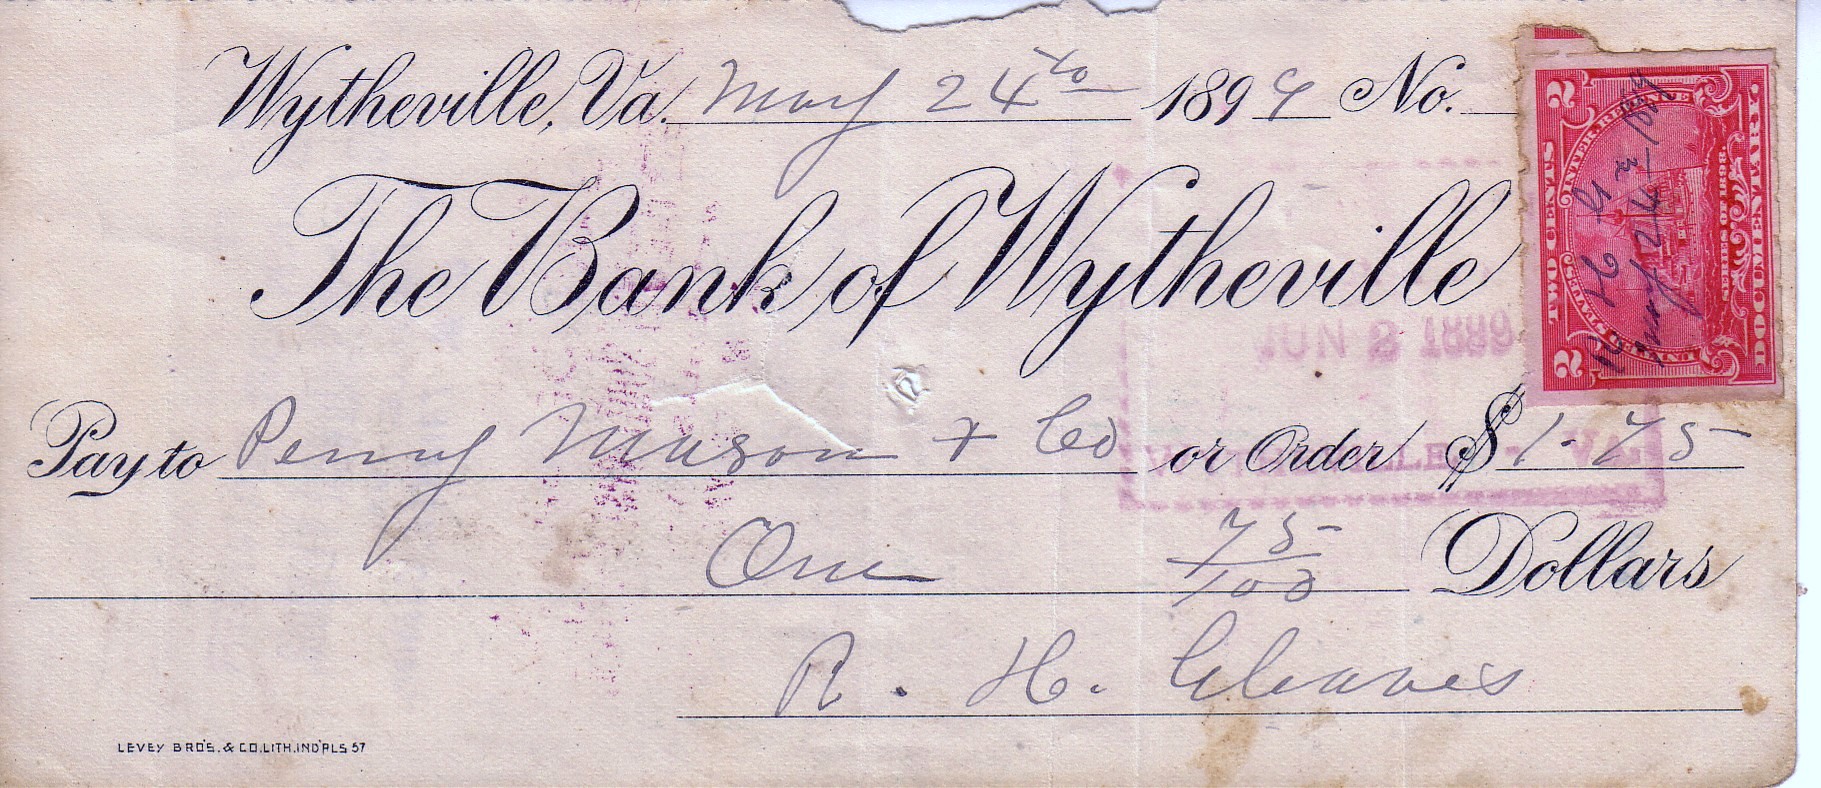 Wytheville, Va. May 24th 1899 No.
The Bank of Wytheville
JUN 8 1899
Pay to Penny Mason & Co or Order $ 1.75
One 75/100 Dollars
R. H. Gleaves
LEVEY BRO'S. & CO. LITH. IND'PLS 57
TWO CENTS
2 UNITED STATES INTER. REVENUE 2
SERIES OF 1898
DOCUMENTARY
R H G
May 24 1899